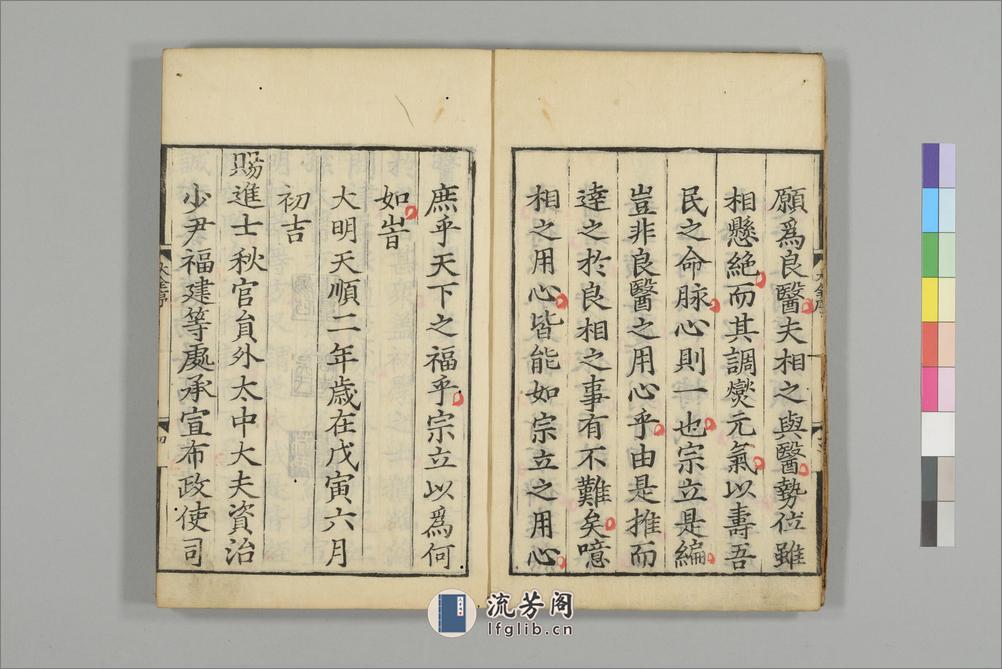 願爲良醫夫相之與醫勢位雖
相懸絶而其調爕元氣以壽吾
民之命脉心則一也宗立是編
豈非良醫之用心乎由是推而
達之於良相之事有不難矣噫
相之用心皆能如宗立之用心
庶乎天下之福乎宗立以爲何
如旹
大明天順二年歲在戊寅六月
初吉
賜進士秋官貟外太中大夫資治
少尹福建等處承宣布政使司
大全序
四
流芳阁
lfglib.cn